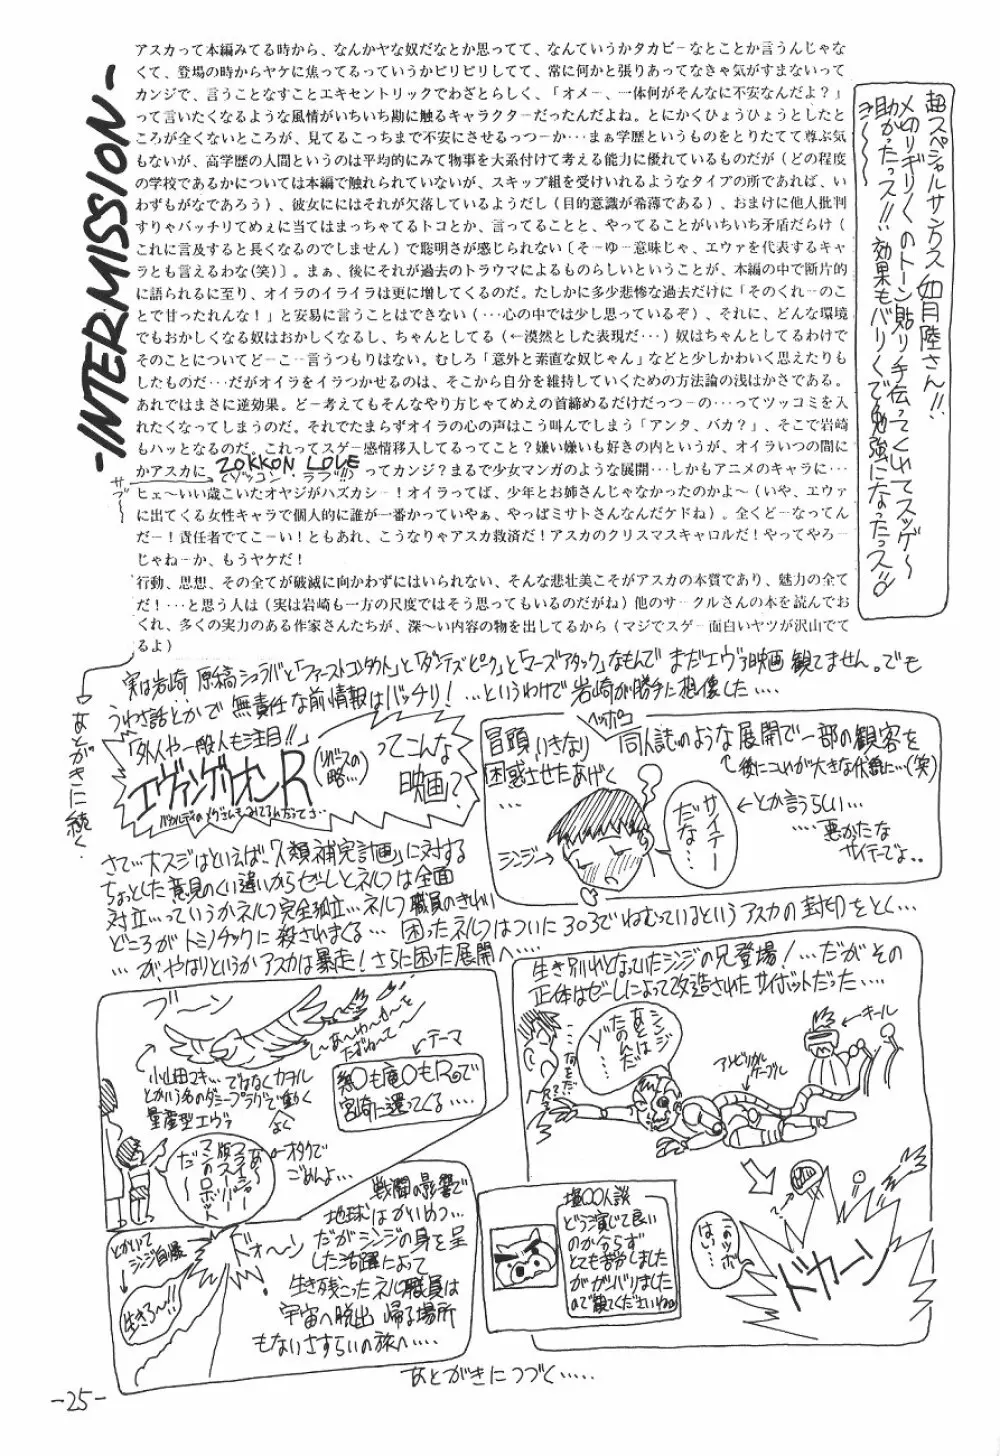 -INTERMISSION-
アスカって本編みてる時から、なんかヤな奴だなとか思ってて、なんていうかタカビーなとことか言うんじゃな
くて、登場の時からヤケに焦ってるっていうかピリピリしてて、常に何かと張りあってなきゃ気がすまないって
カンジで、言うことなすことエキセントリックでわざとらしく、「オメー、一体何がそんなに不安なんだよ？」
って言いたくなるような風情がいちいち勘に触るキャラクターだったんだよね。とにかくひょうひょうとしたと
ころが全くないところが、見てるこっちまで不安にさせるっつーか…まぁ学歴というものをとりたてて尊ぶ気
もないが、高学歴の人間というのは平均的にみて物事を大系付けて考える能力に優れているものだが（どの程度
の学校であるかについては本編で触れられていないが、スキップ組を受けいれるようなタイプの所であれば、い
わずもがなであろう）、彼女ににはそれが欠落しているようだし（目的意識が希薄である）、おまけに他人批判
すりゃバッチリてめぇに当てはまっちゃてるトコとか、言ってることと、やってることがいちいち矛盾だらけ（
これに言及すると長くなるのでしません）で聡明さが感じられない〔そーゆー意味じゃ、エヴァを代表するキャ
ラとも言えるわな(笑)〕。まぁ、後にそれが過去のトラウマによるものらしいということが、本編の中で断片的
に語られるに至り、オイラのイライラは更に増してくるのだ。たしかに多少悲惨な過去だけに「そのくれーのこ
とで甘ったれんな！」と安易に言うことはできない（…心の中では少し思っているぞ）、それに、どんな環境
でもおかしくなる奴はおかしくなるし、ちゃんとしてる（←漠然とした表現だ…）奴はちゃんとしてるわけで
そのことについてどーこー言うつもりはない。むしろ「意外と素直な奴じゃん」などと少しかわいく思えたりも
したものだ…だがオイラをイラつかせるのは、そこから自分を維持していくための方法論の浅はかさである。
あれではまさに逆効果。どー考えてもそんなやり方じゃてめえの首締めるだけだっつーの…ってツッコミを入
れたくなってしまうのだ。それでたまらずオイラの心の声はこう叫んでしまう「アンタ、バカ？」、そこで岩崎
もハッとなるのだ、これってスゲー感情移入してるってこと？嫌い嫌いも好きの内というが、オイラいつの間に
かアスカに ZOKKON LOVE ってカンジ？まるで少女マンガのような展開…しかもアニメのキャラに…
(ゾッコン・ラブ!!)
サブ～
ヒェ～いい歳こいたオヤジがハズカシー！オイラってば、少年とお姉さんじゃなかったのかよ～（いや、エヴァ
に出てくる女性キャラで個人的に誰が一番かっていやぁ、やっぱミサトさんなんだケドね）。全くどーなってん
だー！責任者でてこーい！ともあれ、こうなりゃアスカ救済だ！アスカのクリスマスキャロルだ！やってやろー
じゃねーか、もうヤケだ！
行動、思想、その全てが破滅に向かわずにはいられない、そんな悲壮美こそがアスカの本質であり、魅力の全て
だ！…と思う人は（実は岩崎も一方の尺度ではそう思ってもいるのだがね）他のサークルさんの本を読んでお
くれ、多くの実力のある作家さんたちが、深～い内容の物を出してるから（マジでスゲー面白いヤツが沢山でて
るよ）
→あとがきに続く
超スペシャルサンクス 如月陸さん!!
〆切りギリギリのトーン貼り手伝ってくれてスッゲ～
助かったっス!! 効果もバリバリで勉強になったっス!!
実は岩崎 原稿シュラバと「ファーストコンタクト」と「ダンテズピーク」と「マーズアタック」なもんで まだエヴァ映画 観てません。でも
うわさ話とかで 無責任な前情報はバッチリ！…というわけで 岩崎が勝手に想像した…
「外人や一般人も注目!!」
エヴァンゲリオンR
(リバースの略…)
ってこんな
映画？
冒頭いきなり
ヘッポコ
同人誌のような展開で一部の観客を
困惑させたあげく
…
後にコレが大きな伏線に…(笑)
シンジ→
サイテー
だな…
←とか言うらしい…
…悪かたな
サイテーでよ..
さて…大スジはといえば、「人類補完計画」に対する
ちょっとした意見のくい違いからゼーレとネルフは全面
対立…っていうかネルフ完全孤立…ネルフ職員のきれい
どころがトミノチックに殺されまくる… 困ったネルフはついに303でねむっているというアスカの封印をとく…
…が、やはりというかアスカは暴走！さらに困った展開へ…
ブーン
小山田マキ…ではなくカヲル
とかいう名のダミープラグで動く
量産型エヴァ
←テーマ
宮崎に還ってくる…
オタクで
ごめんよ…
とかいて
シンジ自爆
生きろ～!!
ドォーン
戦闘の影響で
地球はかいめつ…
だがシンジの身を呈
した活躍によって
生き残ったネルフ職員は
宇宙へ脱出 帰る場所
もないさすらいの旅へ…
生き別れとなっていたシンジの兄登場！…だがその
正体はゼーレによって改造されたサイボットだった…
シンジ
あとは
たのんだ
←キール
アンビリカル
ケーブル
このツボ
はい…
ドカーン
塩○○人談
どう演じて良い
のか分らず
とても苦労しました
がガンバリました
ので観てくださいね
あとがきにつづく…..
-25-